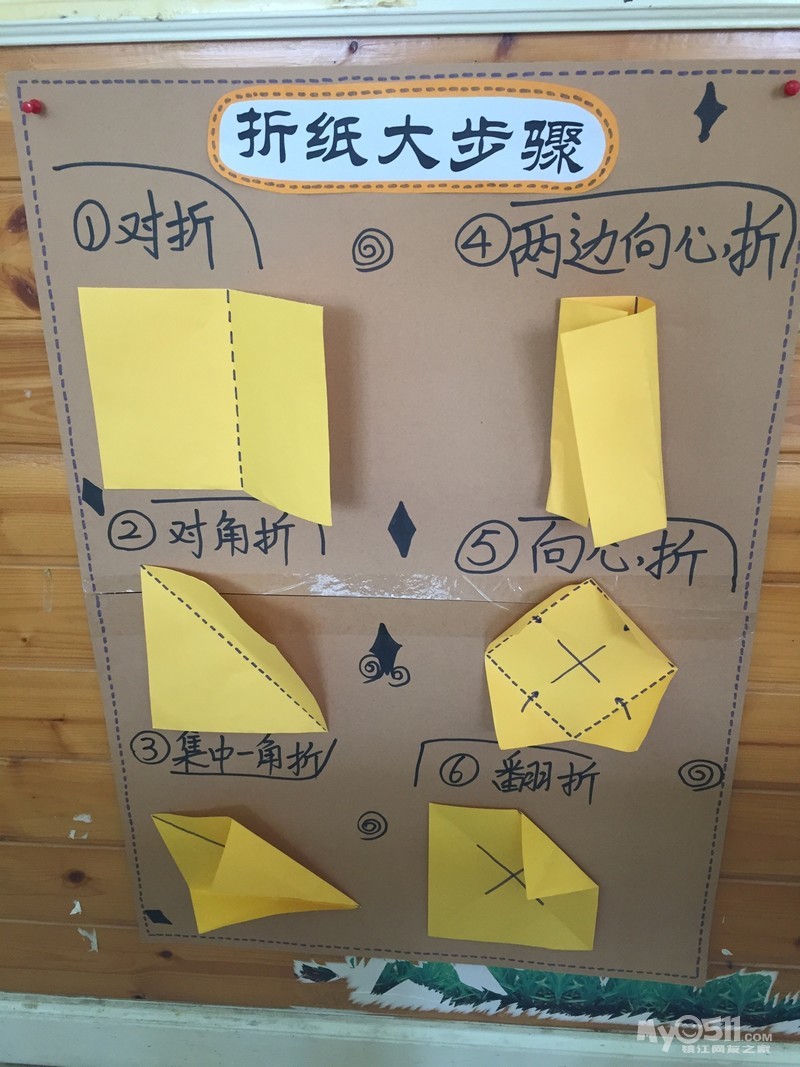 折纸大步骤
①对折
②对角折
③集中一角折
④两边向心折
⑤向心折
⑥翻折
MY0511.COM
镇江网友之家